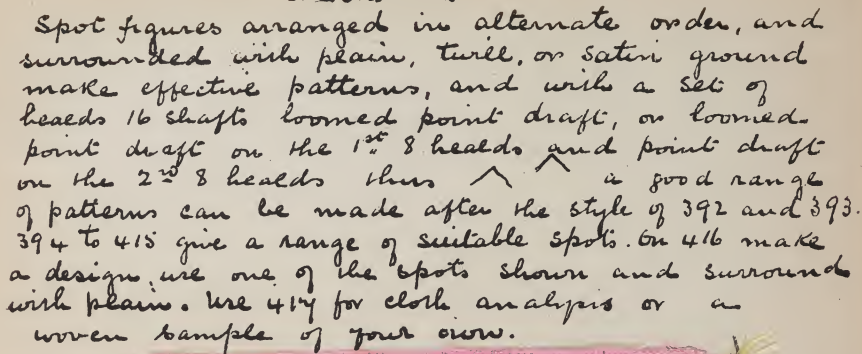 Spot figures arranged in alternate order, and
surrounded with plain, twill, or satin ground
make effective patterns, and with a set of
healds 16 shafts loomed point draft, or loomed
point draft on the 1st 8 healds and point draft
on the 2nd 8 healds thus ^ ^ a good range
of patterns can be made after the style of 392 and 393.
394 to 415 give a range of suitable spots. On 416 make
a design, use one of the spots shown and surround
with plain. Use 417 for cloth analysis or a
woven sample of your own.